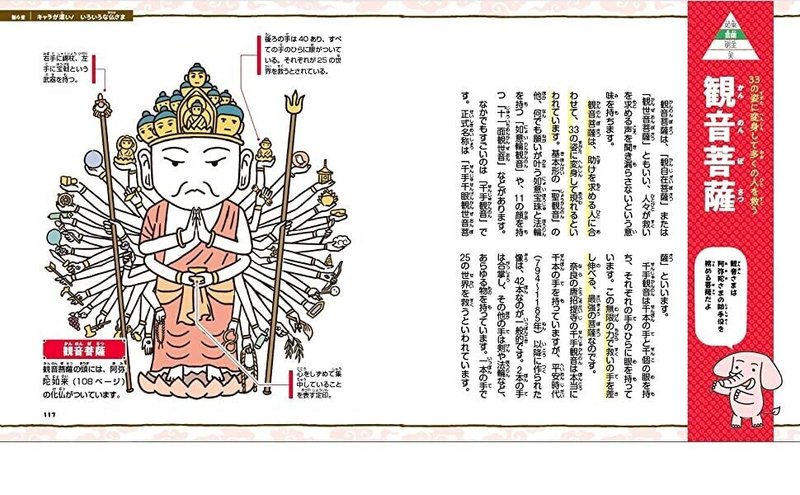 如来
菩薩
明王
天
33の姿に変身して多くの人を救う
観音菩薩
かんのんぼさつ
観音さまは
阿弥陀さまの助手役を
務める菩薩だよ
観音菩薩は、「観自在菩薩」または
「観世音菩薩」ともいい、人々が救い
を求める声を聞き漏らさないという意
味を持ちます。
観音菩薩は、助けを求める人に合
わせて、33の姿に変身して現れるとい
われています。基本形の「聖観音」の
他、何でも願いが叶う如意宝珠と法輪
を持つ「如意輪観音」や、11の顔を持
つ「十一面観世音」などがあります。
なかでもすごいのは「千手観音」で
す。正式名称は「千手千眼観世音菩
薩」といいます。
千手観音は千本の手と千個の眼を持
ち、それぞれの手のひらに眼を持って
います。この無限の力で救いの手を差
し伸べる、最強の菩薩なのです。
奈良の唐招提寺の千手観音は本当に
千本の手を持っていますが、平安時代
(794〜1185年)以降に作られた
像は、42本なのが一般的です。2本の手
は合掌し、その他の手は剣や法輪など、
あらゆる物を持っています。一本の手で
25の世界を救うといわれています。
キャラが濃い! いろいろな仏さま
後ろの手は40あり、すべ
ての手のひらに眼がついて
いる。それぞれが25の世
界を救うとされている。
右手に錫杖、左
手に宝戟という
武器を持つ。
心をしずめて集
中していること
を表す定印。
観音菩薩
かんのんぼさつ
観音菩薩の頭には、阿弥
陀如来(108ページ)
の化仏がついています。
117